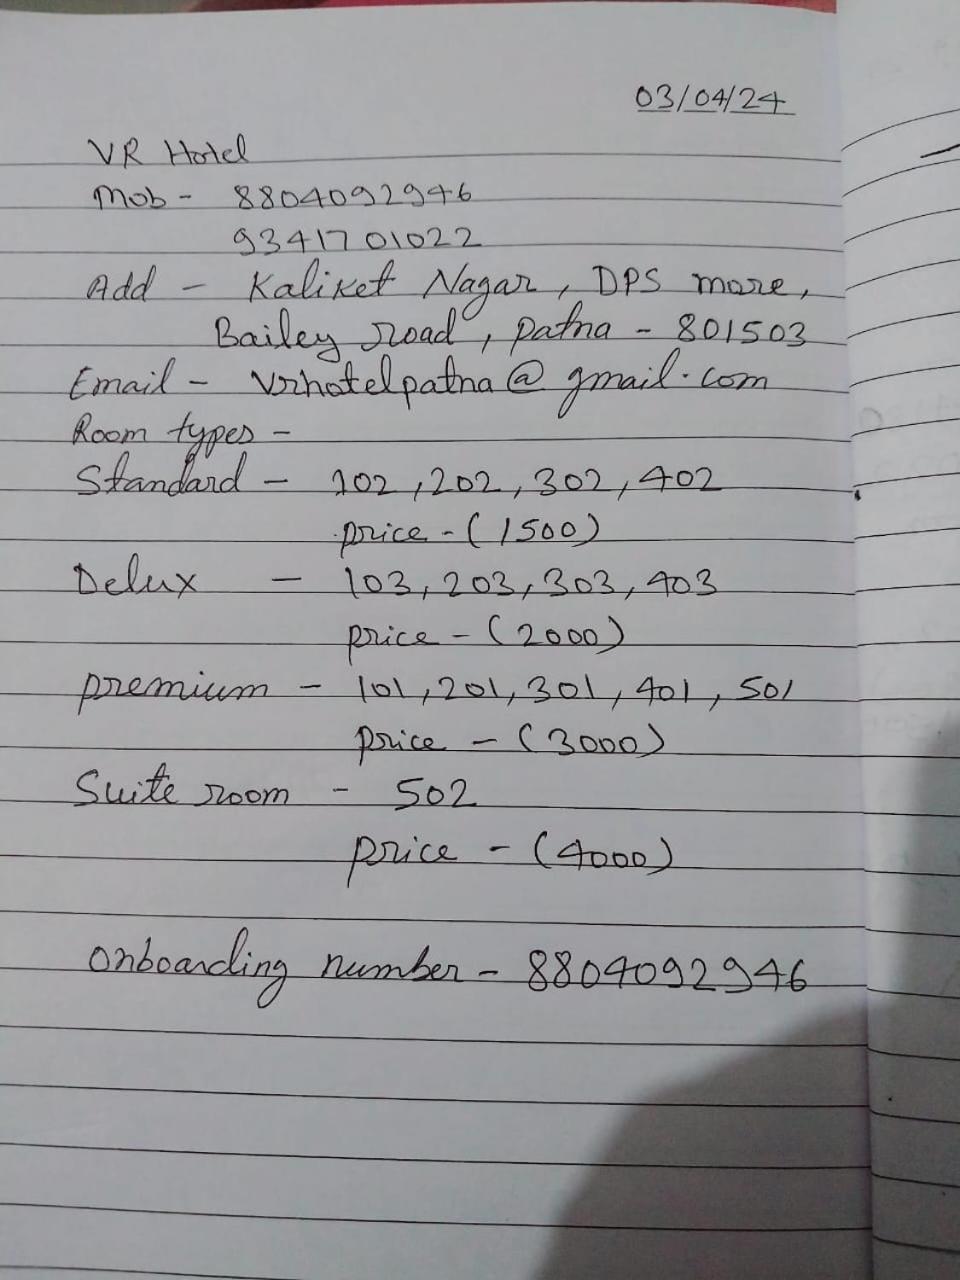 03/04/24
VR Hotel
Mob - 8804092946
9341701022
Add - Kaliket Nagar, DPS more,
Bailey road, patna - 801503
Email - vrhotelpatna@gmail.com
Room types -
Standard - 102, 202, 302, 402
price - (1500)
Delux - 103, 203, 303, 403
price - (2000)
premium - 101, 201, 301, 401, 501
price - (3000)
Suite room - 502
price - (4000)
onboarding number - 8804092946